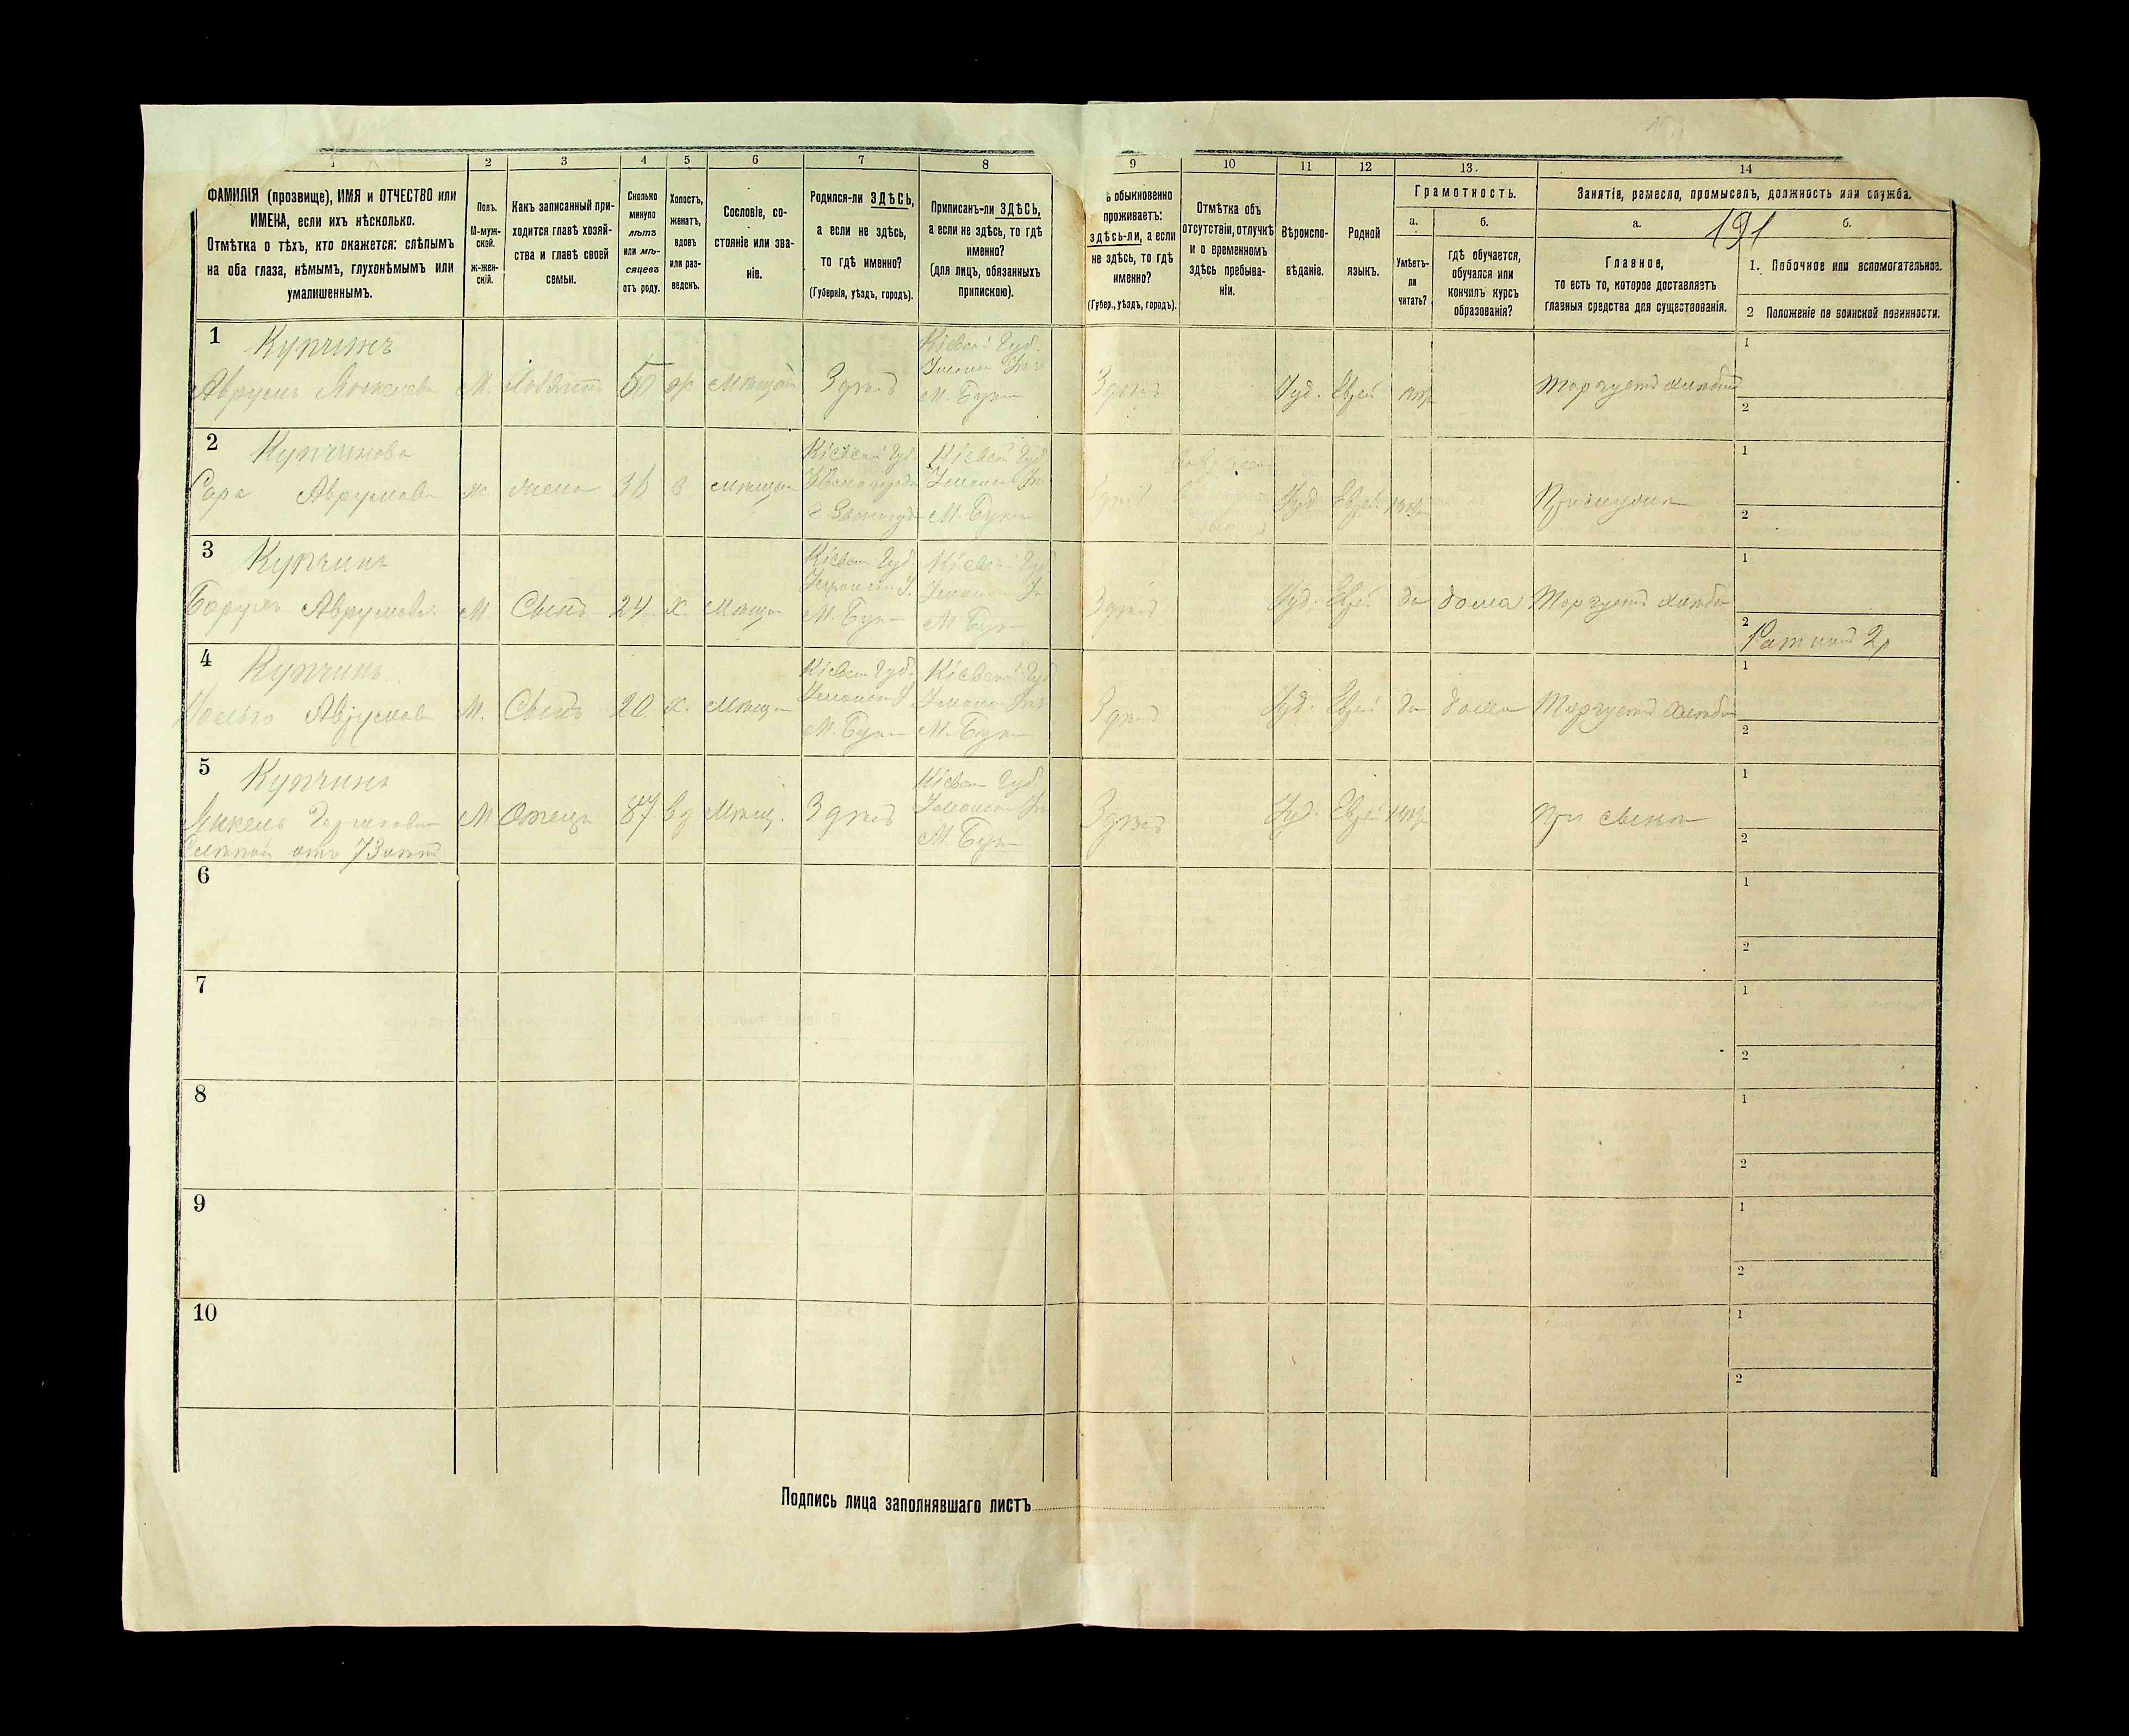 1 2 3 4 5 6 7 8 9 10 11 12 13. 14
ФАМИЛІЯ (прозвище), ИМЯ и ОТЧЕСТВО или
ИМЕНА, если ихъ нѣсколько.
Отмѣтка о тѣхъ, кто окажется: слѣпымъ
на оба глаза, нѣмымъ, глухонѣмымъ или
умалишеннымъ.
Полъ.
М-муж-
ской.
Ж-жен-
скій.
Какъ записанный при-
ходится главѣ хозяй-
ства и главѣ своей
семьи.
Сколько
минуло
лѣтъ
или мѣ-
сяцевъ
отъ роду.
Холостъ,
женатъ,
вдовъ
или раз-
веденъ.
Сословіе, со-
стояніе или зва-
ніе.
Родился-ли ЗДѢСЬ,
а если не здѣсь,
то гдѣ именно?
(Губернія, уѣздъ, городъ).
Приписанъ-ли ЗДѢСЬ,
а если не здѣсь, то гдѣ
именно?
(для лицъ, обязанныхъ
припискою).
ѣ обыкновенно
проживаетъ:
здѣсь-ли, а если
не здѣсь, то гдѣ
именно?
(Губер., уѣздъ, городъ).
Отмѣтка объ
отсутствіи, отлучкѣ
и о временномъ
здѣсь пребыва-
ніи.
Вѣроиспо-
вѣданіе.
Родной
языкъ.
Грамотность.
а.
Умѣетъ-
ли
читать?
б.
гдѣ обучается,
обучался или
кончилъ курсъ
образованія?
Занятія, ремесло, промыселъ, должность или служба.
191
а.
Главное,
то есть то, которое доставляетъ
главныя средства для существованія.
б.
1. Побочное или вспомогательное.
2 Положеніе по воинской повинности.
1 Купчинъ
Аврумъ М. Хозяинъ 50 ж Здѣсь
Кіевск Губ.
М. Буки
Здѣсь Іуд. Еврей Торгуетъ хлѣбомъ
1
2
2 Купчинова
Сара Аврумова ж. жена 36 з
Кіевской Губ
Кіевск Губ
М. Буки
Іуд. Еврей
1
2
3 Купчинъ
Борухъ Аврумовъ М. Сынъ 24 х.
Кіевск Губ.
М. Буки
Кіевск Губ
М. Буки
Здѣсь Іуд. Еврей да дома Торгуетъ хлѣбо
1
2
Ратникъ 2р
4 Купчинъ
Аврумовъ М. Сынъ 20 х.
Кіевск Губ.
М. Буки
Кіевск Губ
М. Буки
Здѣсь Іуд. Еврей да дома Торгуетъ хлѣбо
1
2
5 Купчинъ
Янкель М Отецъ 87 вд Мѣщ. Здѣсь
Слѣпой отъ 73 лѣтъ
Кіевск Губ
М. Буки
Здѣсь Іуд. Еврей При сынѣ
1
2
6
1
2
7
1
2
8
1
2
9
1
2
10
1
2
Подпись лица заполнявшаго листъ